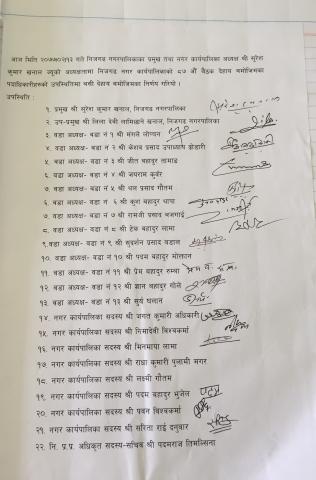 आज मिति २०७७०२१२ गते निजगढ नगरपालिकाका प्रमुख तथा नगर कार्यपालिका अध्यक्ष श्री सुरेश
कुमार खनाल ज्युको अध्यक्षतामा निजगढ नगर कार्यपालिकाको ८७ औं बैठक देहाय बमोजिमका
पदाधिकारीहरुको उपस्थितिमा बसी देहाय बमोजिमका निर्णय गरियो।
उपस्थिति :
१. प्रमुख श्री सुरेश कुमार खनाल, निजगढ नगरपालिका
२. उप-प्रमुख श्री लिला देवी लामिछाने खनाल, निजगढ नगरपालिका
३. वडा अध्यक्ष- वडा नं १ श्री मंगले लोप्चान
४. वडा अध्यक्ष- वडा नं २ श्री केशव प्रसाद उपाध्याय
५. वडा अध्यक्ष- वडा नं ३ श्री जीत बहादुर तामाङ
६. वडा अध्यक्ष- वडा नं ४ श्री जयराम कुवँर
७. वडा अध्यक्ष- वडा नं ५ श्री थल प्रसाद गौतम
६. वडा अध्यक्ष- वडा नं ६ श्री कुल बहादुर थापा
७. वडा अध्यक्ष- वडा नं ७ श्री रामजी प्रसाद बजगाई
८. वडा अध्यक्ष- वडा नं ८ श्री टेक बहादुर लामा
९.वडा अध्यक्ष- वडा नं ९ श्री सुदर्शन प्रसाद
१०. वडा अध्यक्ष- वडा नं १० श्री पदम बहादुर मोक्तान
११. वडा अध्यक्ष- वडा नं ११ श्री प्रेम बहादुर रुम्बा
१२. वडा अध्यक्ष- वडा नं १२ श्री ज्ञान बहादुर गोले
१३. वडा अध्यक्ष- वडा नं १३ श्री सुर्य घलान
१४. नगर कार्यपालिका सदस्य श्री जगत कुमारी अधिकारी
१५. नगर कार्यपालिका सदस्य श्री निमादेवी विश्वकर्मा
१६. नगर कार्यपालिका सदस्य श्री मिनमाया लामा
१७ नगर कार्यपालिका सदस्य श्री राधा कुमारी पुलामी मगर
१८. नगर कार्यपालिका सदस्य श्री लक्ष्मी गौतम
१९. नगर कार्यपालिका सदस्य श्री पदम बहादुर भुजेल
२०. नगर कार्यपालिका सदस्य श्री पवन विश्वकर्मा
२१. नगर कार्यपालिका सदस्य श्री सरिता राई दनुवार
२२. नि. प्र.प्र. अधिकृत सदस्य-सचिव श्री पदमराज तिमल्सिना